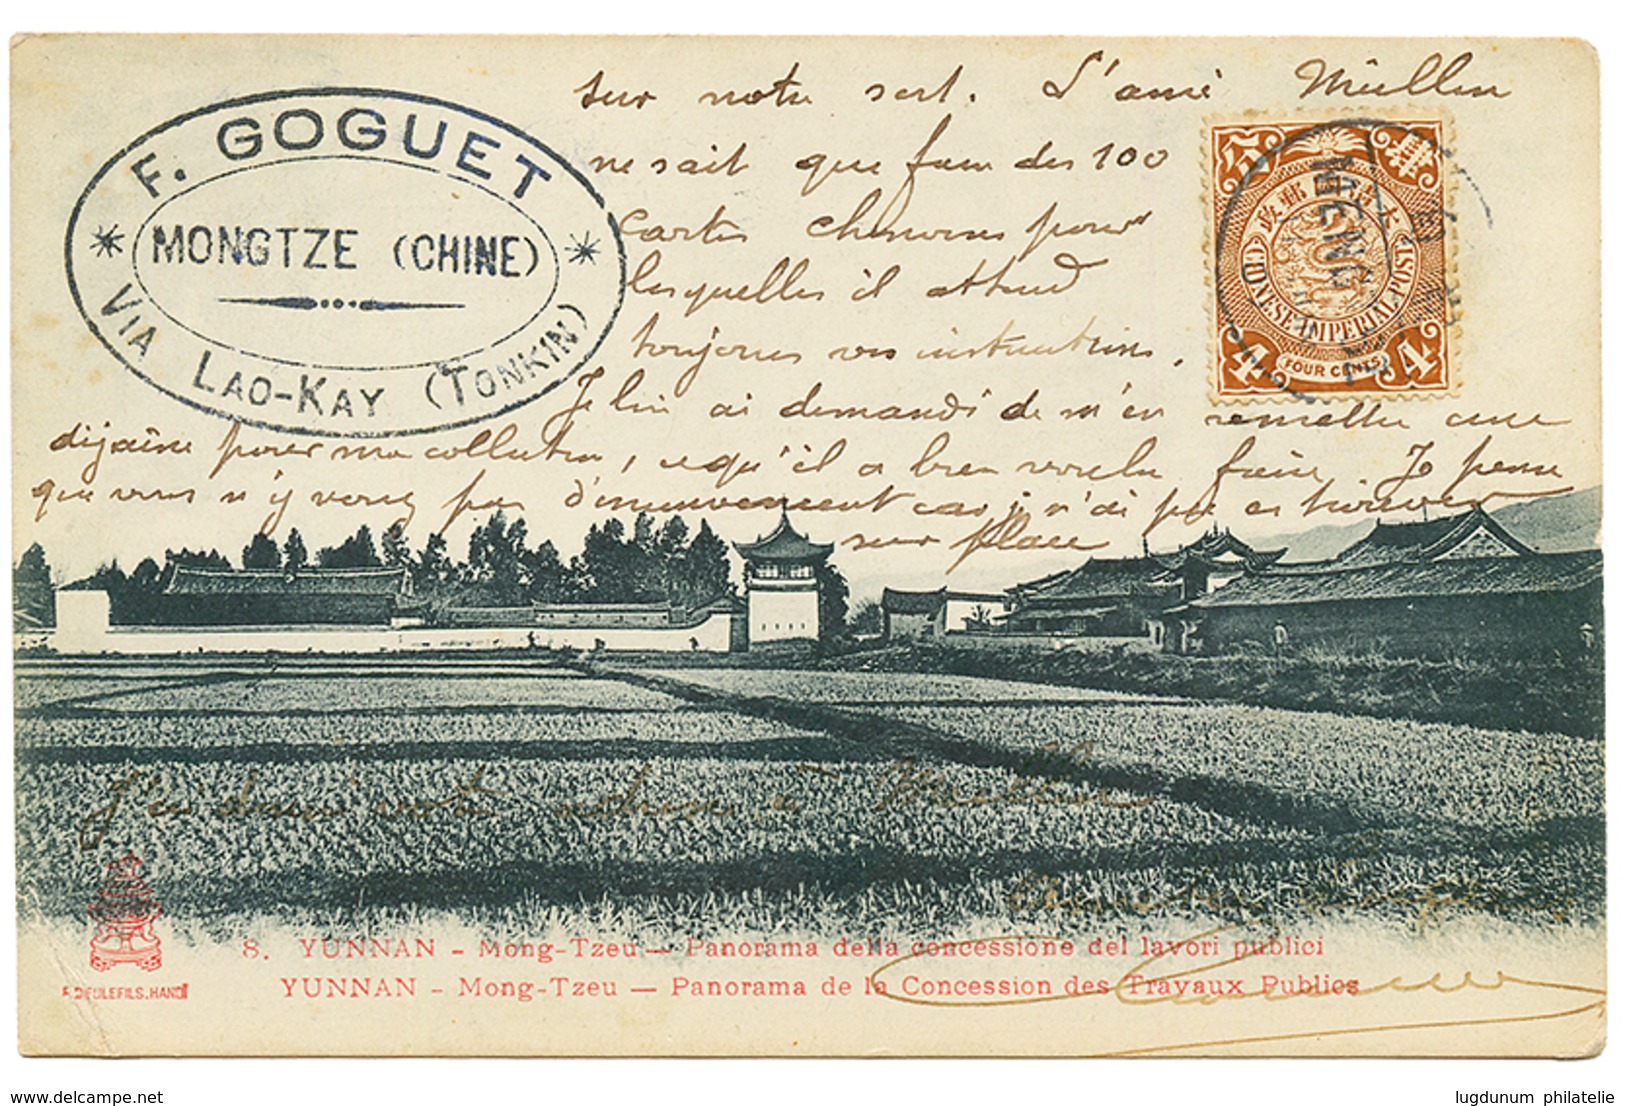 F. GOGUET
MONGTZE (CHINE)
VIA LAO-KAY (TONKIN)
sur notre sort. L'ami Müller
ne sait que faire des 100
cartes chinoises pour
lesquelles il attend
toujours vos instructions.
Je lui ai demandé de m'en remettre une
dizaine pour ma collection, ce qu'il a bien voulu faire. Je pense
que vous n'y voyez pas d'inconvénient car je n'ai pu en trouver
sur place
大清郵政
肆分
CHINESE IMPERIAL POST
4 FOUR CENTS 4
MENGTSZ
J'ai donné votre adresse à Müller
8. YUNNAN - Mong-Tzeu — Panorama della concessione del lavori publici
YUNNAN - Mong-Tzeu — Panorama de la Concession des Travaux Publics
P. DIEULEFILS. HANOÏ
www.delcampe.net
lugdunum philatelie